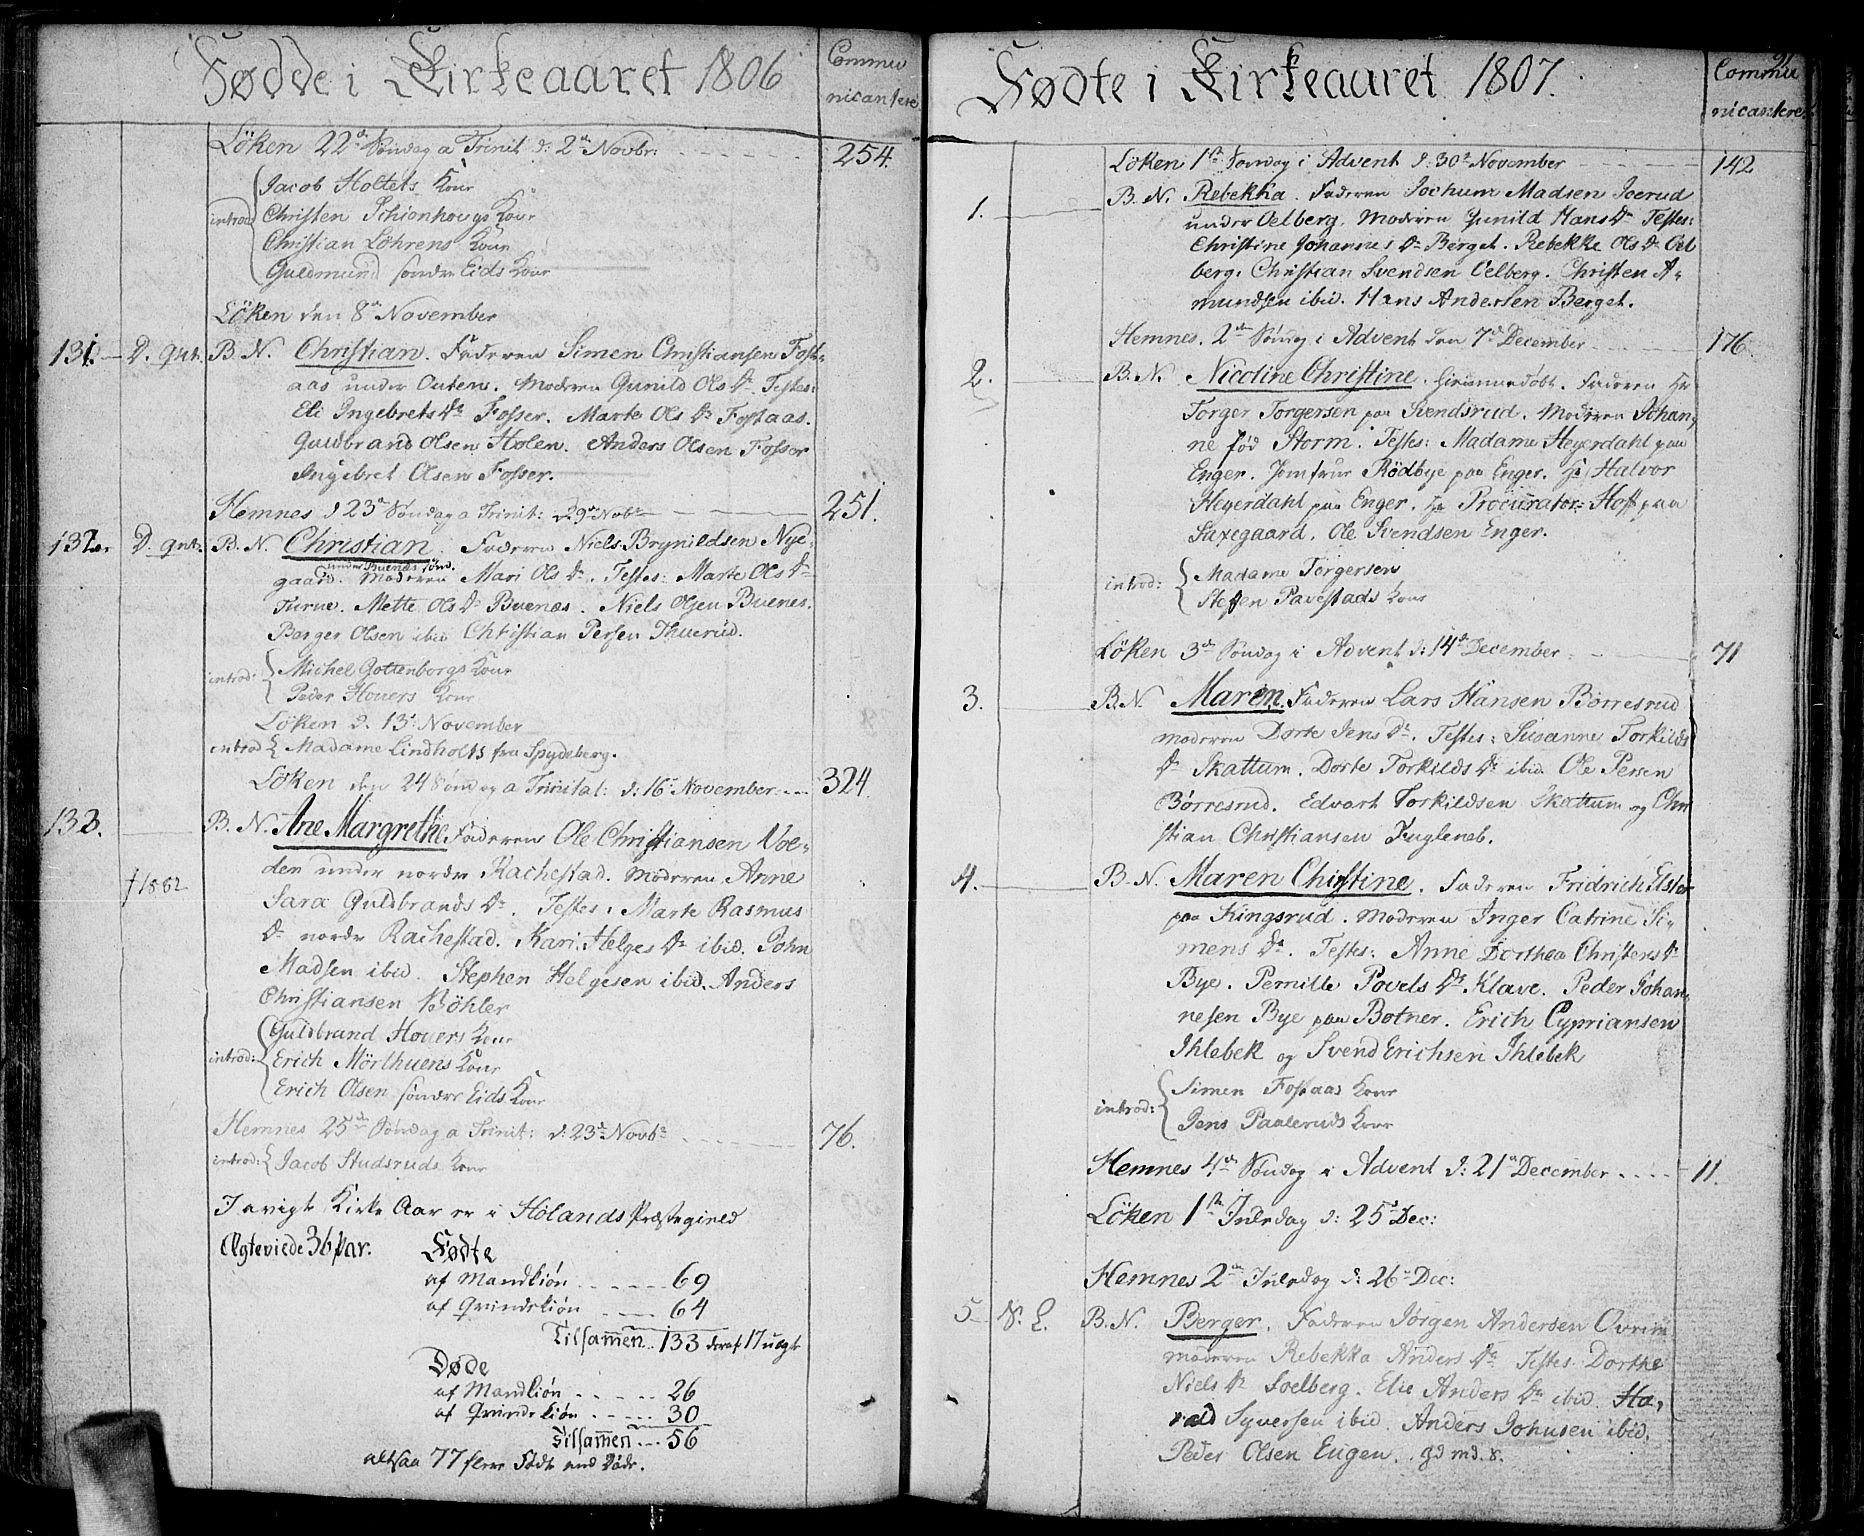 Fødde i Kirkeaaret 1806
Commu
nicantere
Löken 22de Søndag a Trinit d: 2den Novbr:
254
Jacob Holtets Kone
introd: Christen Schionhougs Kone
Christian Löhrens Kone
Guldmund søndre Eids Kone
Löken den 8de November
131. D. gut. B. N. Christian. Faderen Simen Christiansen Fost-
aas under Outen. Moderen Gunild Ols Dr. Testes:
Eli Ingebrets Dr Fosser. Marte Ols Dr Fostaas.
Guldbrand Olsen Holen. Anders Olsen Fosser
Ingebret Olsen Fosser.
Hemnes d 23de Søndag a Trinit: d. 9de Novbr
251.
132. D. gut. B. N. Christian. Faderen Niels Brynildsen Nye-
under Buenæs sønd.
gaard. Moderen Mari Ols Dr. Testes: Marte Ols Dr
Turne. Mette Ols Dr Buenæs. Niels Olsen Buenes.
Berger Olsen ibid Christian Persen Thuerud.
introd: Michel Gottenborgs Kone
Peder Houers Kone
Löken d. 13de November
introd Madame Lindholts fra Spydeberg.
Löken den 24 Søndag a Trinitat: d: 16de November
324
133. B. N. Ane Margrethe. Faderen Ole Christiansen Vol-
den under nordre Rachestad. Moderen Anne
†1882
Sara Guldbrands Dr. Testes: Marte Rasmus
Dr nordre Rachestad. Kari Helges Dr ibid. John
Madsen ibid. Stephen Helgesen ibid. Anders
Christiansen Böhler
Guldbrand Houers Kone
introd: Erich Mörthuens Kone
Erich Olsen søndre Eids Kone
Hemnes 25de Søndag a Trinit: d: 23de Novbr
76.
introd: Jacob Studsruds Kone
I avigte Kirke Aar er i Hølands Præstegield
Ægteviede 36 Par. Fødte
af Mandkiøn 69
af Qvindekiøn 64
Tilsamen 133 deraf 17 uægte
Døde
af Mandkiøn 26
af Qvindekiøn 30
Tilsamen 56
altsaa 77 flere Födte end Döde.
91
Fødte i Kirkeaaret 1807.
Commu
nicantere
Löken 1ste Søndag i Advent d: 30te November
142
1. B. N. Rebekka. Faderen Jochum Madsen Joerud
under Oelberg. Moderen Gunild Hans Dr Testes:
Christine Johannes Dr Berget. Rebekke Ols Dr Oel
berg. Christian Svendsen Oelberg. Christen A-
mundsen ibid. Hans Andersen Berget.
Hemnes. 2den Søndag i Advent den 7de December
176.
2. B. N. Nicoline Christine. Hiemmedøbt. Faderen Hr
Torger Torgersen paa Svendsrud. Moderen Johan,
ne fød Storm. Testes: Madame Heyerdahl paa
Enger. Jomfrue Rödbye paa Enger. Hr Halvor
Heyerdahl paa Enger. Hr Procurator Hoff paa
Saxegaard. Ole Svendsen Enger.
introd: Madame Torgersen
Steffen Pavestads Kone
Löken 3die Søndag i Advent d: 14de December
71
3. B. N. Maren. Faderen Lars Hansen Börresrud
moderen Dorte Jens Dr. Testes: Susanne Torkilds
Dr Skattum. Dorte Torkilds Dr ibid Ole Persen
Börresrud. Edvart Torkildsen Skattum og Chri
stian Christiansen Fugleneb.
4. B. N. Maren Christine. Faderen Fridrich Elster
paa Kingsrud. Moderen Inger Catrine Si-
mens Dr. Testes: Anne Dorthea Christens Dr
Bye. Pernille Povels Dr Klave. Peder Johan,
nesen Bye paa Botner. Erich Cypriansen
Ihlebek og Svend Erichsen Ihlebek
introd: Simen Fostaas Kone
Jens Paaleruds Kone
Hemnes 4de Søndag i Advent d: 21de December
11.
Löken 1ste Juledag d: 25de Dec:
Hemnes 2den Juledag d: 26de Dec:
5 S. L. B. N. Berger. Faderen Jörgen Andersen Ovrim
moderen Rebekka Anders Dr Testes: Dorthe
Niels Dr Soelberg. Elie Anders Dr ibid. Ha,
rald Syversen ibid. Anders Johnsen ibid.
Peder Olsen Eugen.